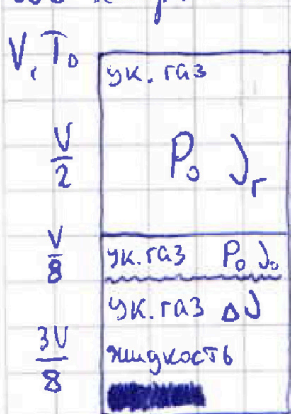 V, T₀
ук. газ
V/2
P₀ ν_г
V/8
ук. газ P₀ ν₀
ук. газ Δν
3V/8
жидкость